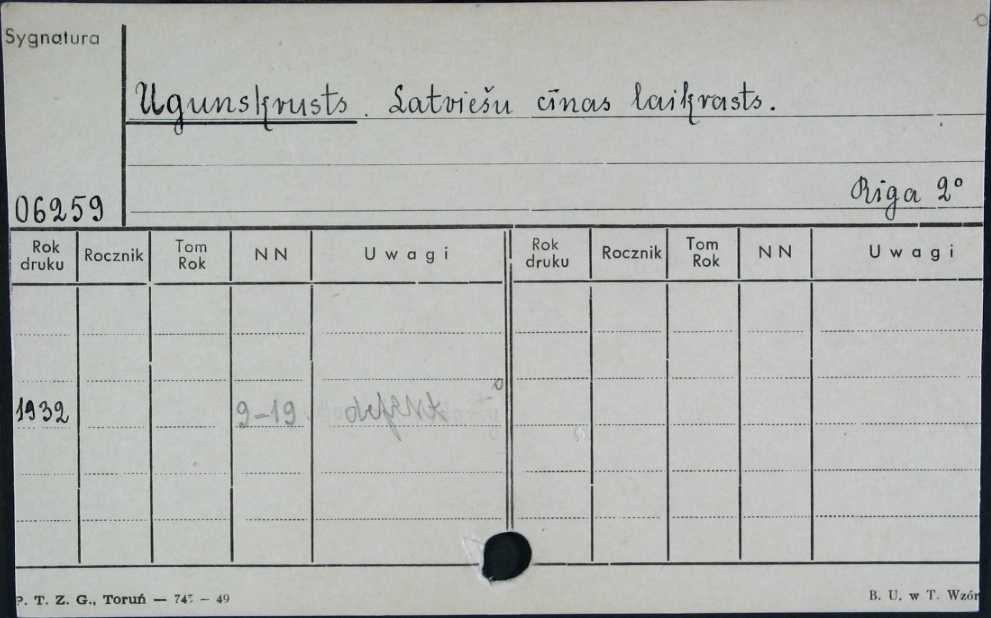 Sygnatura
Ugunskrusts. Latviešu cīnas laikrasts.
Riga 2°
06259
Rok druku Rocznik Tom Rok NN Uwagi Rok druku Rocznik Tom Rok NN Uwagi
1932 9-19 defekt
P. T. Z. G., Toruń — 747 — 49
B. U. w T. Wzór